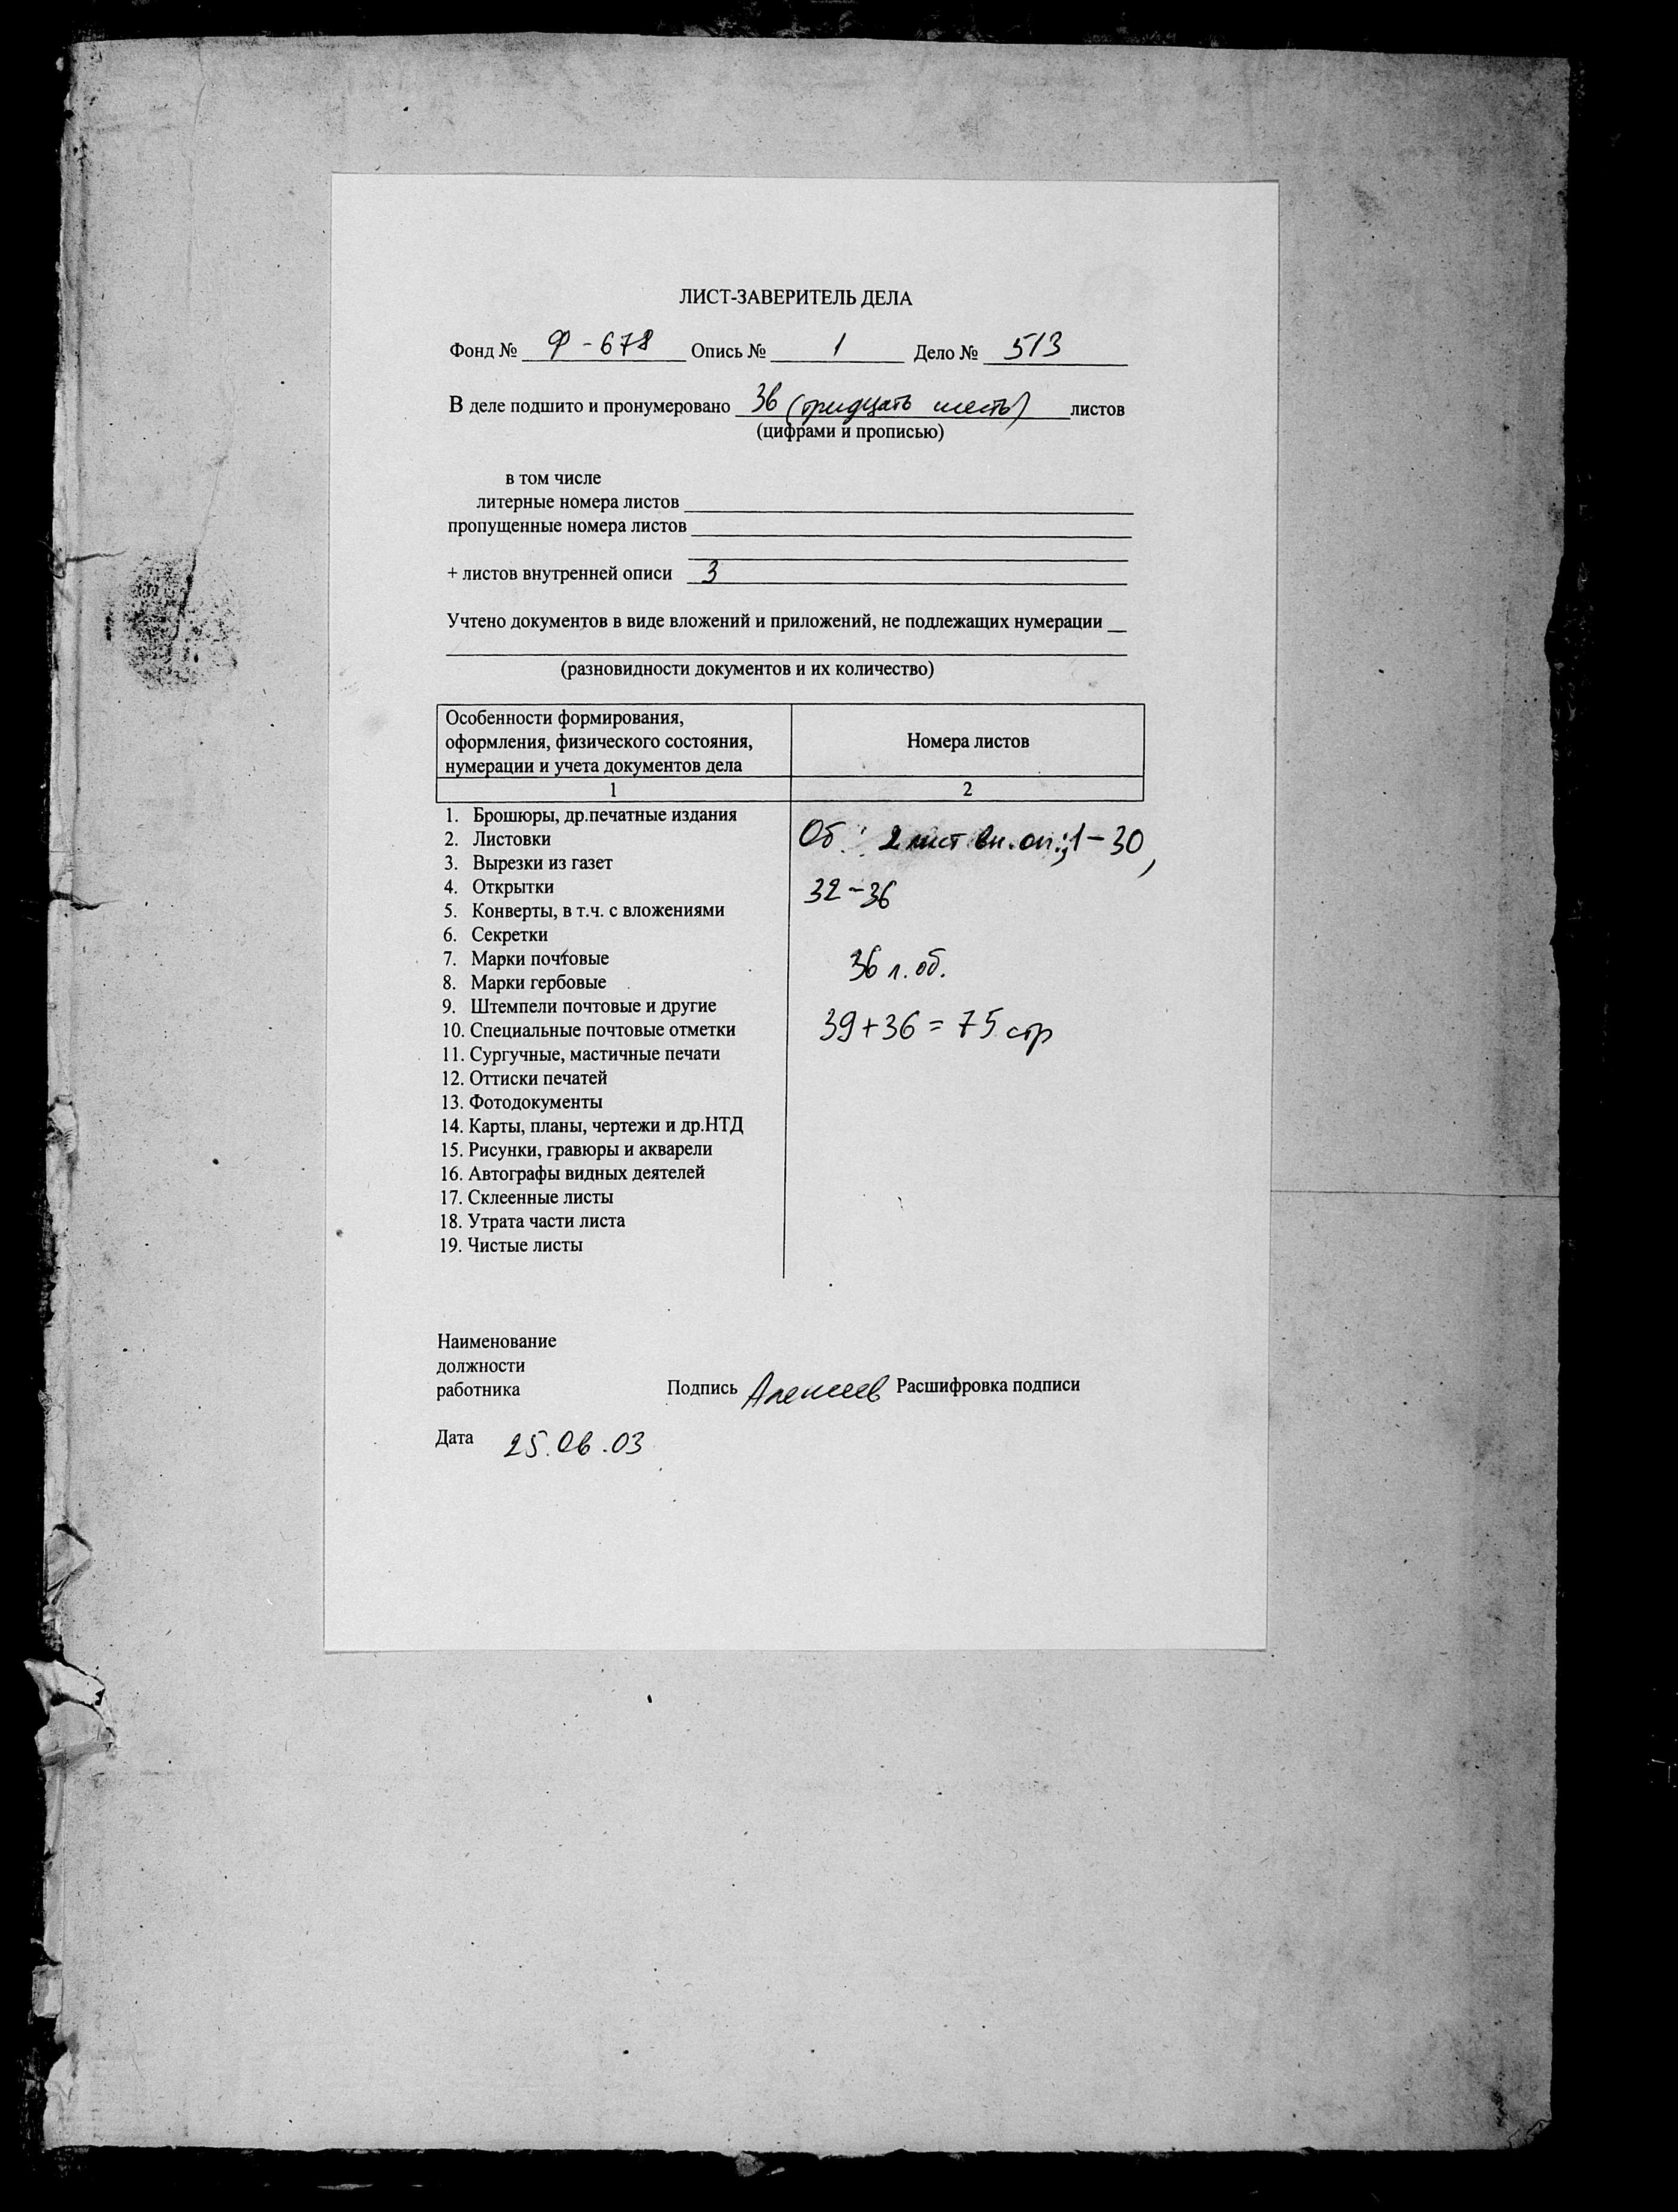 ЛИСТ-ЗАВЕРИТЕЛЬ ДЕЛА
Фонд № Ф-678 Опись № 1 Дело № 513
В деле подшито и пронумеровано 36 (тридцать шесть) листов
(цифрами и прописью)
в том числе
литерные номера листов
пропущенные номера листов
+ листов внутренней описи 3
Учтено документов в виде вложений и приложений, не подлежащих нумерации
(разновидности документов и их количество)
Особенности формирования,
оформления, физического состояния,
нумерации и учета документов дела
Номера листов
1 2
1. Брошюры, др.печатные издания
2. Листовки
3. Вырезки из газет
4. Открытки
5. Конверты, в т.ч. с вложениями
6. Секретки
7. Марки почтовые
8. Марки гербовые
9. Штемпели почтовые и другие
10. Специальные почтовые отметки
11. Сургучные, мастичные печати
12. Оттиски печатей
13. Фотодокументы
14. Карты, планы, чертежи и др.НТД
15. Рисунки, гравюры и акварели
16. Автографы видных деятелей
17. Склеенные листы
18. Утрата части листа
19. Чистые листы
Об.: 2 лист вн. оп.; 1-30,
32-36
36 л. об.
39+36=75 стр
Наименование
должности
работника
Подпись Алексеев Расшифровка подписи
Дата 25.06.03